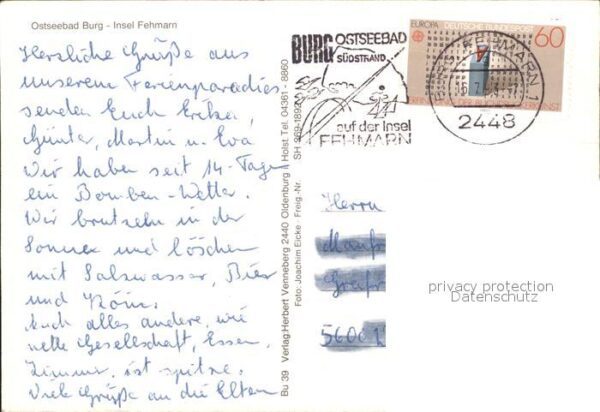 Ostseebad Burg - Insel Fehrmarn
Herzliche Grüße aus
unserem Ferienparadies
senden Euch Erika,
Günter, Martin u. Eva
Wir haben seit 14-Tagen
ein Bomben-Wetter.
Wir brutzeln in der
Sonne und löschen
mit Salzwasser, Bier
und
Auch alles andere, wie
nette Gesellschaft, Essen,
Zimmer, ist spitze.
Viele Grüße an die Eltern
Bu 39 Verlag: Herbert Venneberg 2440 Oldenburg i. Holst. Tel. 04361 - 8860
Foto: Joachim Eicke - Freig.-Nr. SH 969-1892
BURG OSTSEEBAD
SÜDSTRAND
auf der Insel
FEHMARN
EUROPA DEUTSCHE BUNDESPOST 60
FEHMARN 1
2448
Herrn
5600 1
privacy protection
Datenschutz